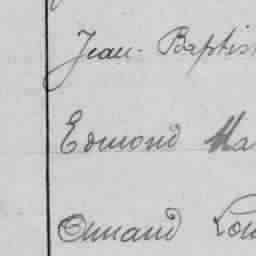 Jean-Baptis
Edmond Ma
Armand Lou